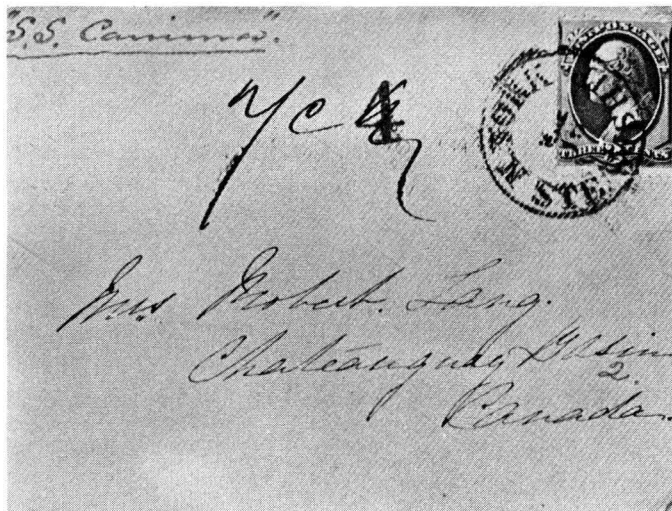 "S.S. Canima".
N. YORK
STE
THREE
4
Mrs Robert. Lang.
Chateauguay Basin
2.
Canada.